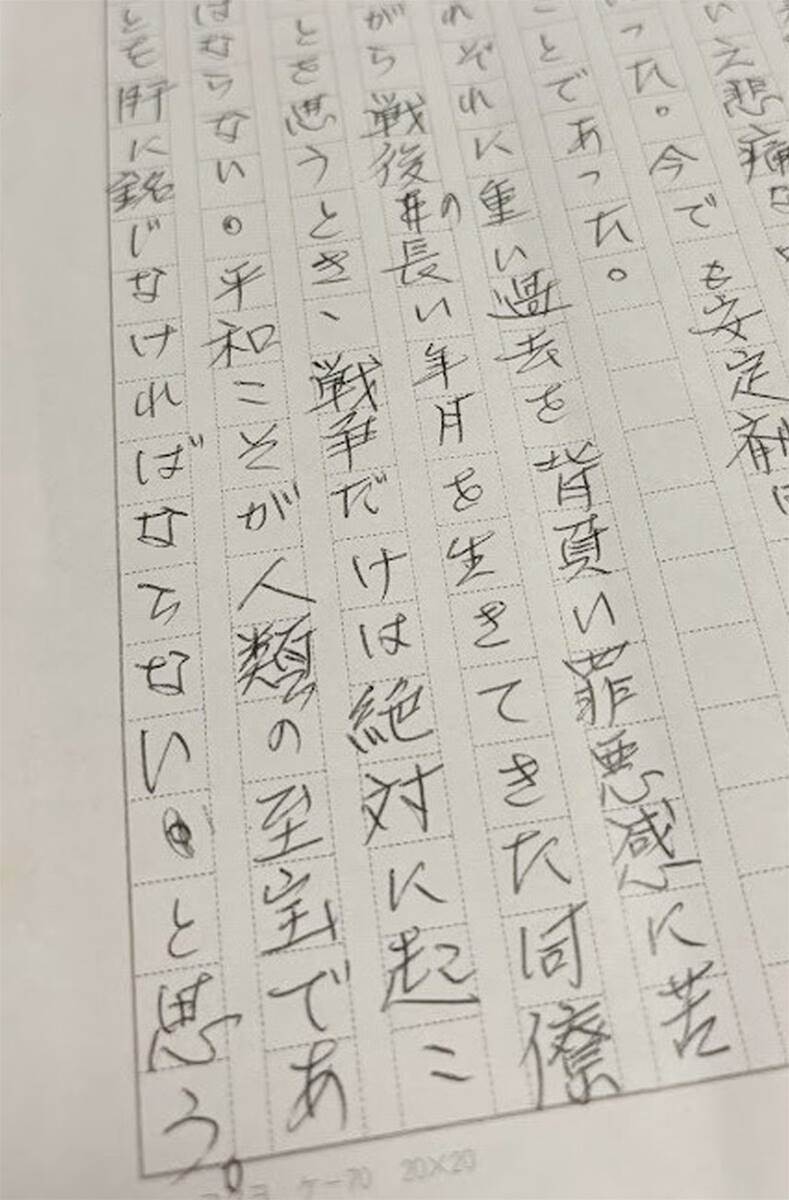 いえ悲痛な
った。今でも安定剤は
ことであった。
れぞれに重い過去を背負い罪悪感に苦
がら戦後の長い年月を生きてきた同僚
とを思うとき、戦争だけは絶対に起こ
はならない。平和こそが人類の至宝であ
とを肝に銘じなければならない。と思う。
ケー70 20×20